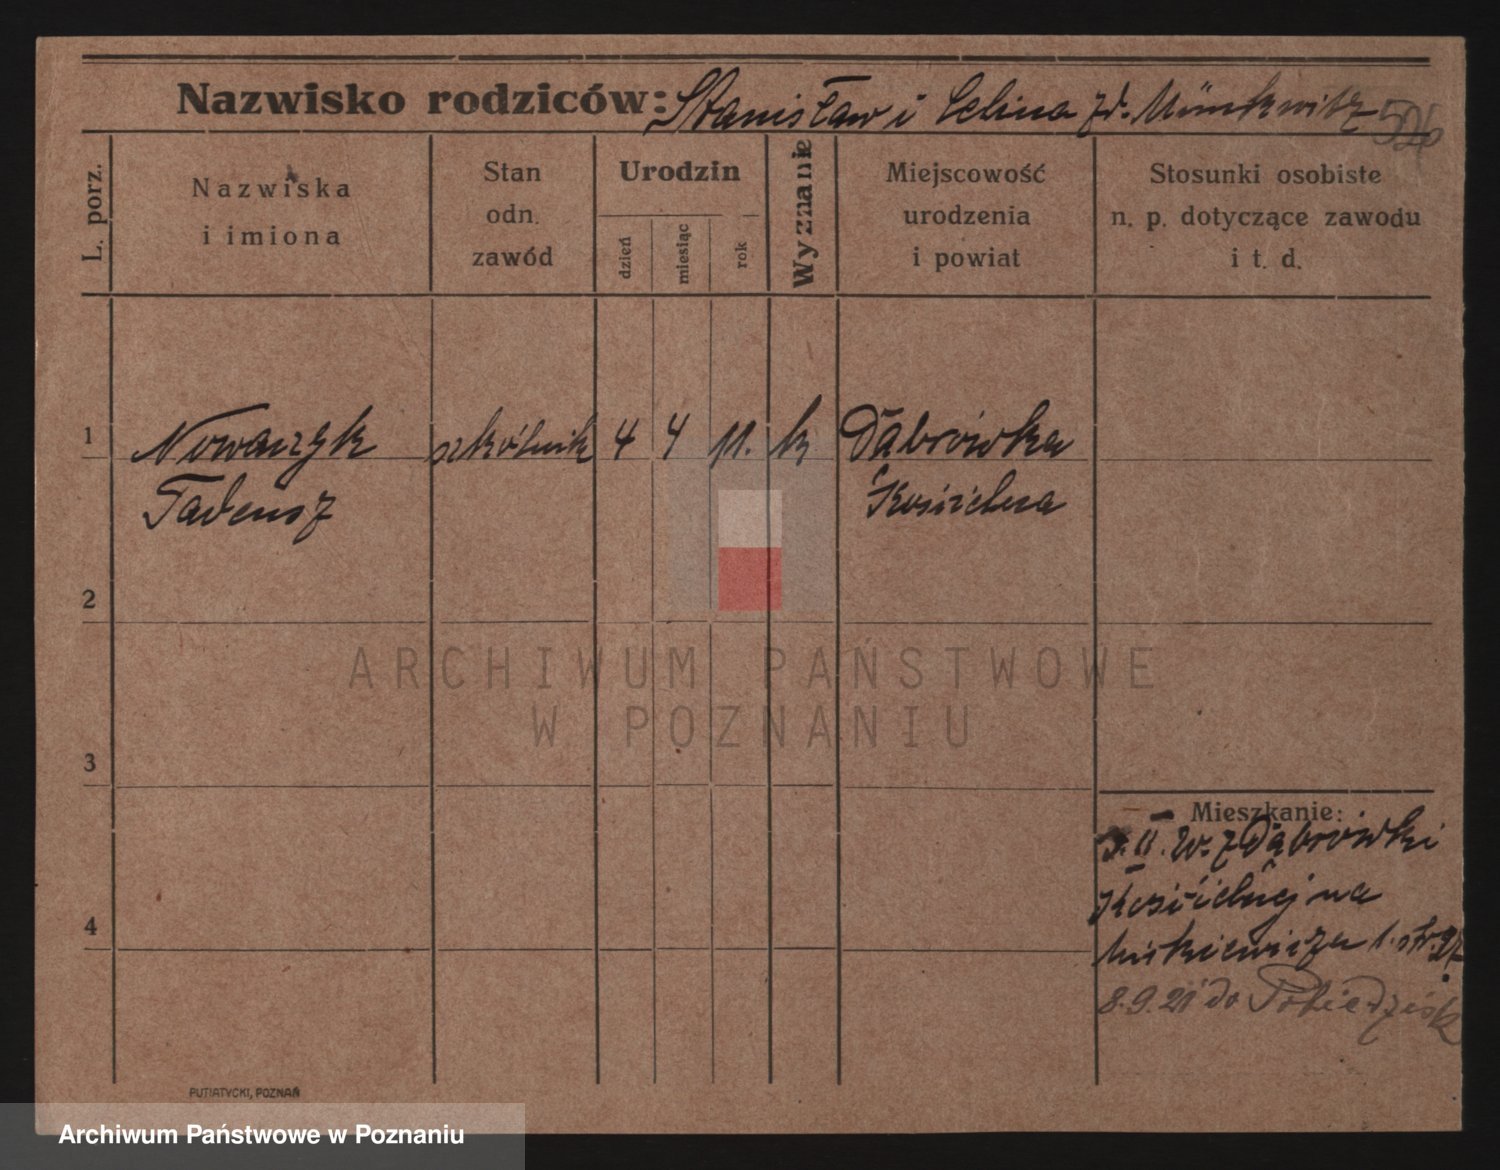 Nazwisko rodziców: Stanisław i Celina zd. Münkwitz
L. porz.
Nazwiska
i imiona
Stan
odn.
zawód
Urodzin
dzień
miesiąc
rok
Wyznanie
Miejscowość
urodzenia
i powiat
Stosunki osobiste
n. p. dotyczące zawodu
i t. d.
1
Nowaczyk szkólnik 4 4 11. k Dąbrówka
Tadeusz Kościelna
2
ARCHIWUM PAŃSTWOWE
W POZNANIU
3
Mieszkanie:
II. W. z Dąbrówki
Kościelnej na
Mickiewicza 1. str.
4
8.9.21 do Pobiedzisk
PUTIATYCKI, POZNAŃ
Archiwum Państwowe w Poznaniu